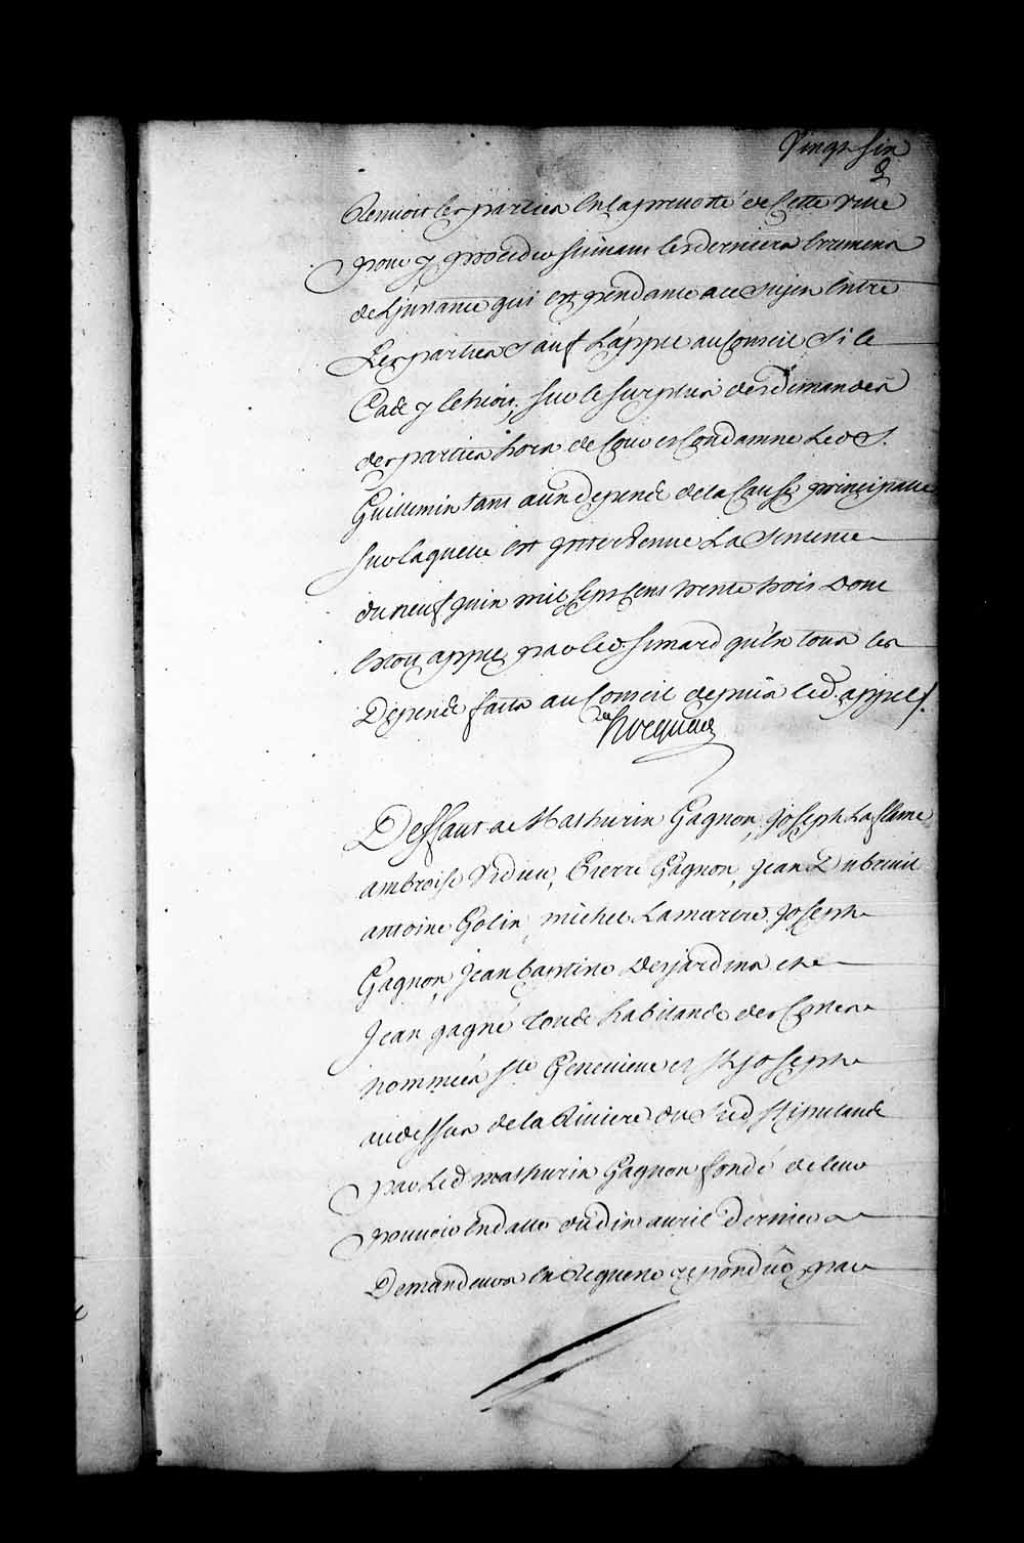 Vingt six
Renvoit les parties en la prevosté de Cette ville
pour y proceder suivant les derniers Erremens
de L'jnstance qui est pendante au sujet Entre
Les parties sauf L'appel au Conseil si le
Cas y Echoit, sur le surplus des demandes
des parties hors de Cour et Condamne Led. S.
Guillemin tant aux depends de la Cause principalle
sur laquelle est jntervenue La sentence
du neuf juin mil sept Cent trente trois dont
Estoit appel par led. Simard qu'En tous les
Depends faits au Conseil depuis led. appel.
Hocquart
Deffaut a Mathurin Gagnon, Joseph Laflame
ambroise Pierre Gagnon, Jean Dubreuil
antoine michel Lamarre Joseph
Gagnon, Jean baptiste Desjardins et
Jean gagné tous habitands des Costes
nommées Ste Genevieve et St Joseph
audessus de la Riviere du Sud stipulands
par Led mathurin Gagnon fondé de leur
pouvoir En datte du dix avril dernier
Demandeurs En Requete repondüe par